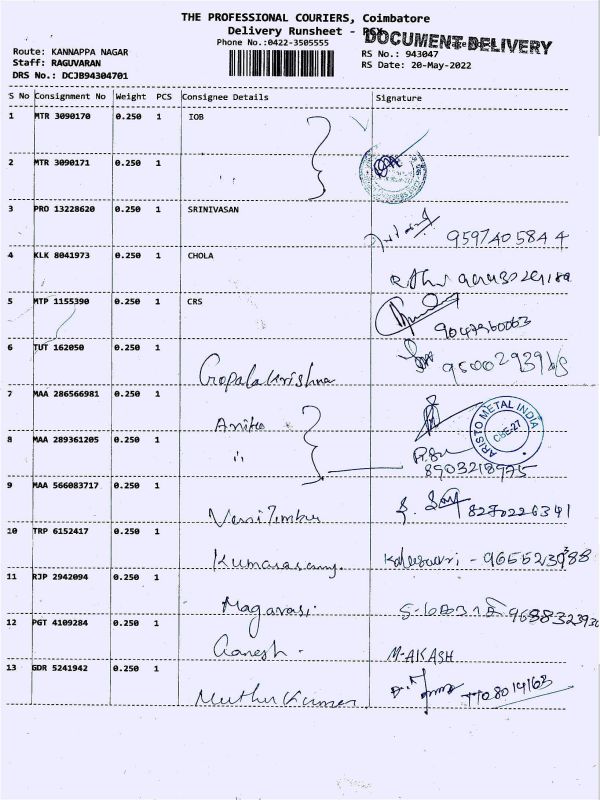 THE PROFESSIONAL COURIERS, Coimbatore
Delivery Runsheet -
DOCUMENT DELIVERY
Phone No.:0422-3505555
Route: KANNAPPA NAGAR
RS No.: 943047
Staff: RAGUVARAN
RS Date: 20-May-2022
DRS No.: DCJB94304701
S No Consignment No Weight PCS Consignee Details Signature
1 MTR 3090170 0.250 1 IOB
2 MTR 3090171 0.250 1 "
3 PRO 13228620 0.250 1 SRINIVASAN
9597405844
4 KLK 8041973 0.250 1 CHOLA
5 MTP 1155390 0.250 1 CRS
9047360063
6 TUT 162050 0.250 1 Gopalakrishna
7 MAA 286566981 0.250 1 Anitha
ARISTO METAL INDIA
CBE-27
8 MAA 289361205 0.250 1 "
8903218975
9 MAA 566083717 0.250 1
8270226341
10 TRP 6152417 0.250 1 Kumarasamy.
11 RJP 2942094 0.250 1 Magarasi.
12 PGT 4109284 0.250 1 Ganesh.
M-AKASH
13 GDR 5241942 0.250 1 Muthu Kumar
7708014163